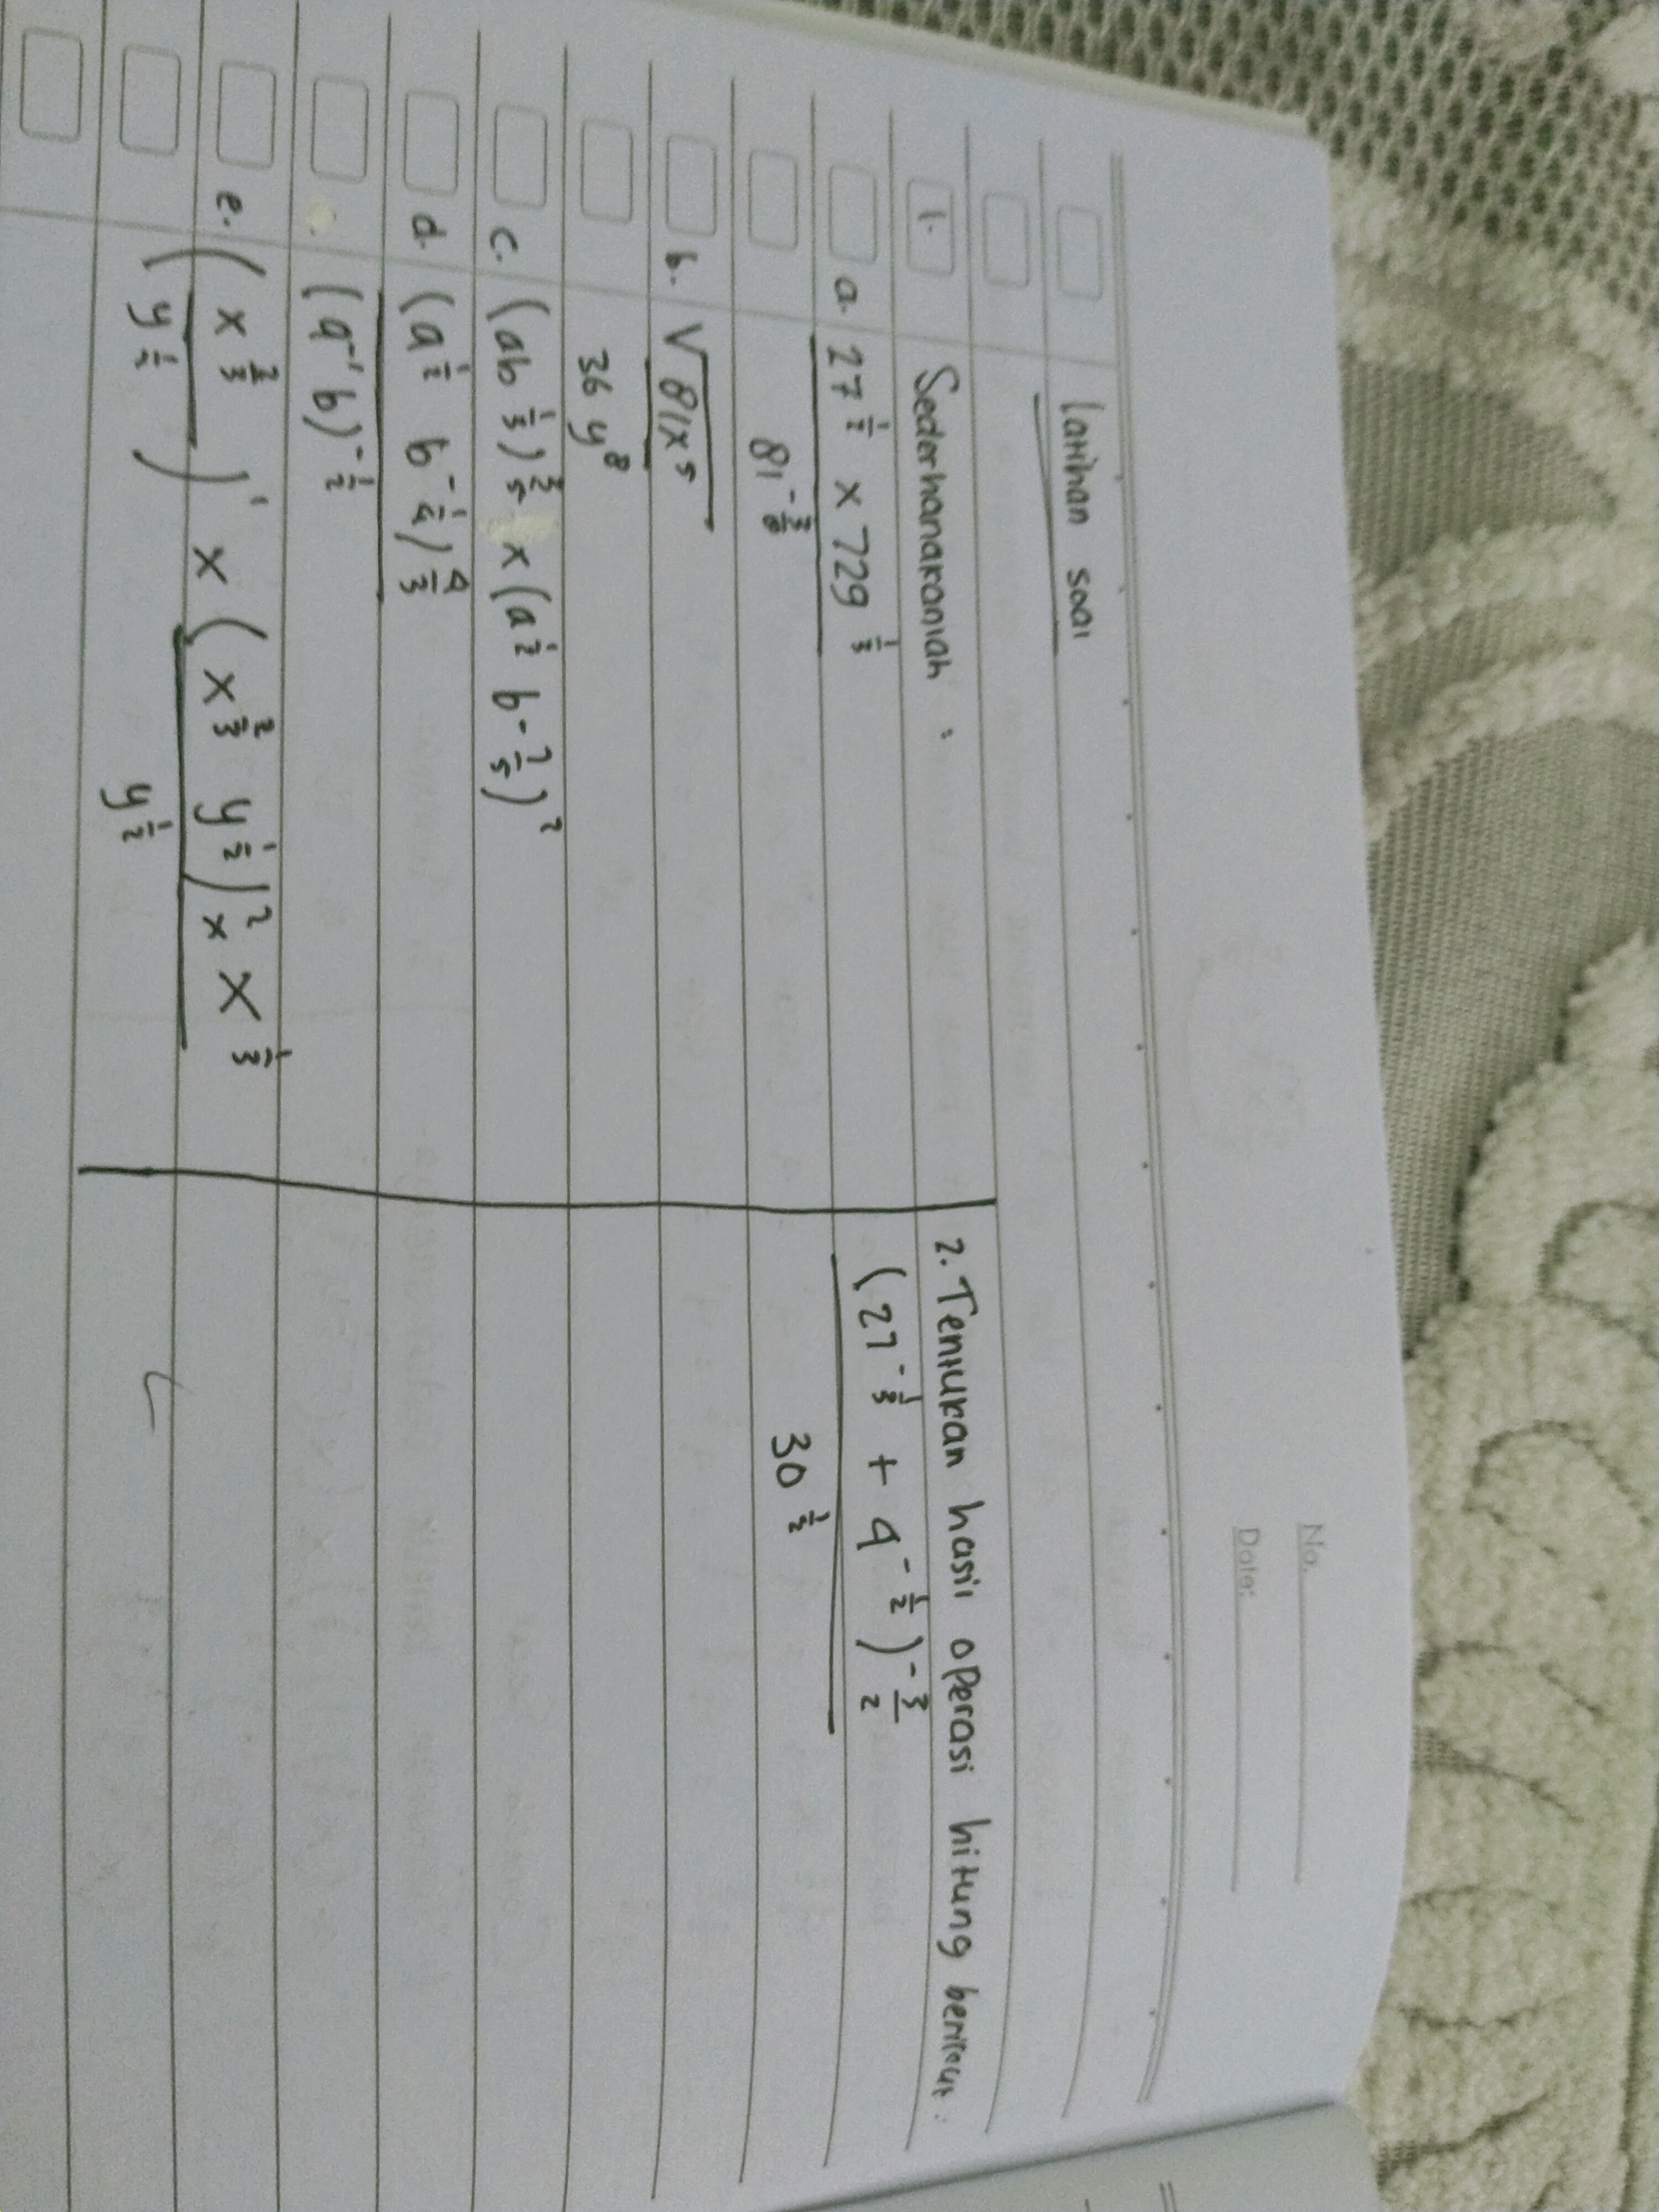 No.
Date:
Latihan soal
1. Sederhanakanlah :
a. 27^(1/2) x 729^(1/3)
81^(-3/8)
b. √81x⁵
36 y⁸
c. (ab^(1/3))^(3/5) x (a^(1/2) b^(-7/5))²
d. (a^(1/2) b^(-1/4))^(4/3)
(a⁻¹ b)^(-1/2)
e. (x^(2/3) / y^(1/2))¹ x (x^(2/3) y^(1/2))² x x^(1/3)
y^(1/2)
2. Tentukan hasil operasi hitung berikut :
(27^(-1/3) + 4^(-1/2))^(-3/2)
30^(1/2)